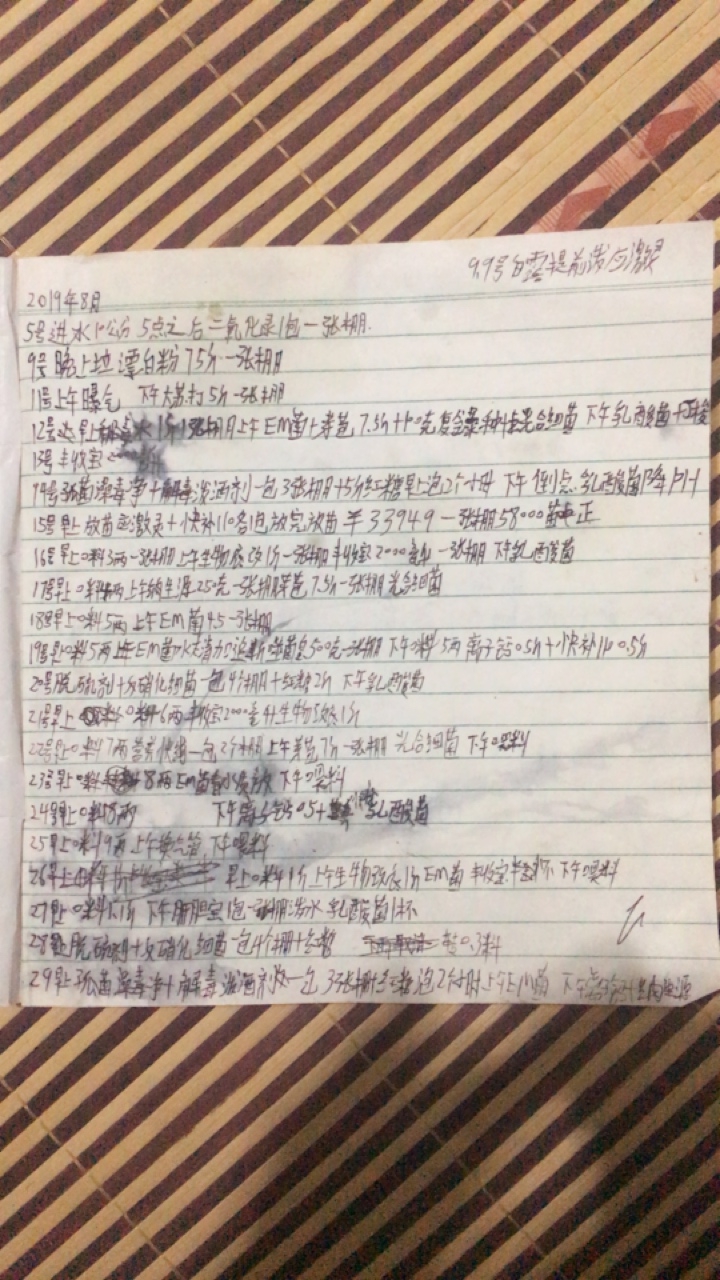 9.9号白露提前泼应激灵
2019年8月
5号进水10公分 5点之后二氧化录1包一张棚.
9号晚上拉漂白粉75斤一张棚
11号上午曝气 下午大苏打5斤一张棚
12号 早上 1斤1张棚 上午EM菌+芽苞 7.5斤+ 克复合藻种+ 光合细菌 下午乳酸菌+
13号丰收宝
14号 菌藻毒净+解毒泼洒剂一包3张棚+5斤红糖早上泡2个小时 下午 乳酸菌降PH
15号早上放苗 应激灵+快补110各1包放完放苗 33949一张棚58000苗 正
16号早上0料3两一张棚上午生物底改1斤一张棚丰收宝2000毫升一张棚 下午乳酸菌
17号早上0料 两上午纳生源250克一张棚芽苞7.5斤一张棚光合细菌
18号早上0料5两上午EM菌4.5一张棚
19号早上0料5两上午EM菌 500克一张棚 下午0料5两离子钙0.5斤+快补110 0.5斤
20号脱硫剂+反硝化细菌一包4个棚+红糖2斤 下午乳酸菌
21号早上 0料6两丰收宝2000毫升生物底改1斤
22号早上0料7两营养快线一包2个棚上午芽苞7斤一张棚 光合细菌 下午喂料
23号早上0料 8两EM菌 下午喂料
24号早上0料8两 下午离子钙0.5+ 乳酸菌
25早上0料9两上午换气管 下午喂料
26号上 早上0料1斤上午生物改底1斤EM菌 丰收宝半 下午喂料
27早上0料 1斤 下午肝胆宝1包一张棚泼水乳酸菌1杯
28早上脱硫剂+反硝化细菌一包4个棚+红糖 0.3料
29早上 菌藻毒净+解毒泼洒剂 一包3张棚红糖泡2小时上午EM菌 下午